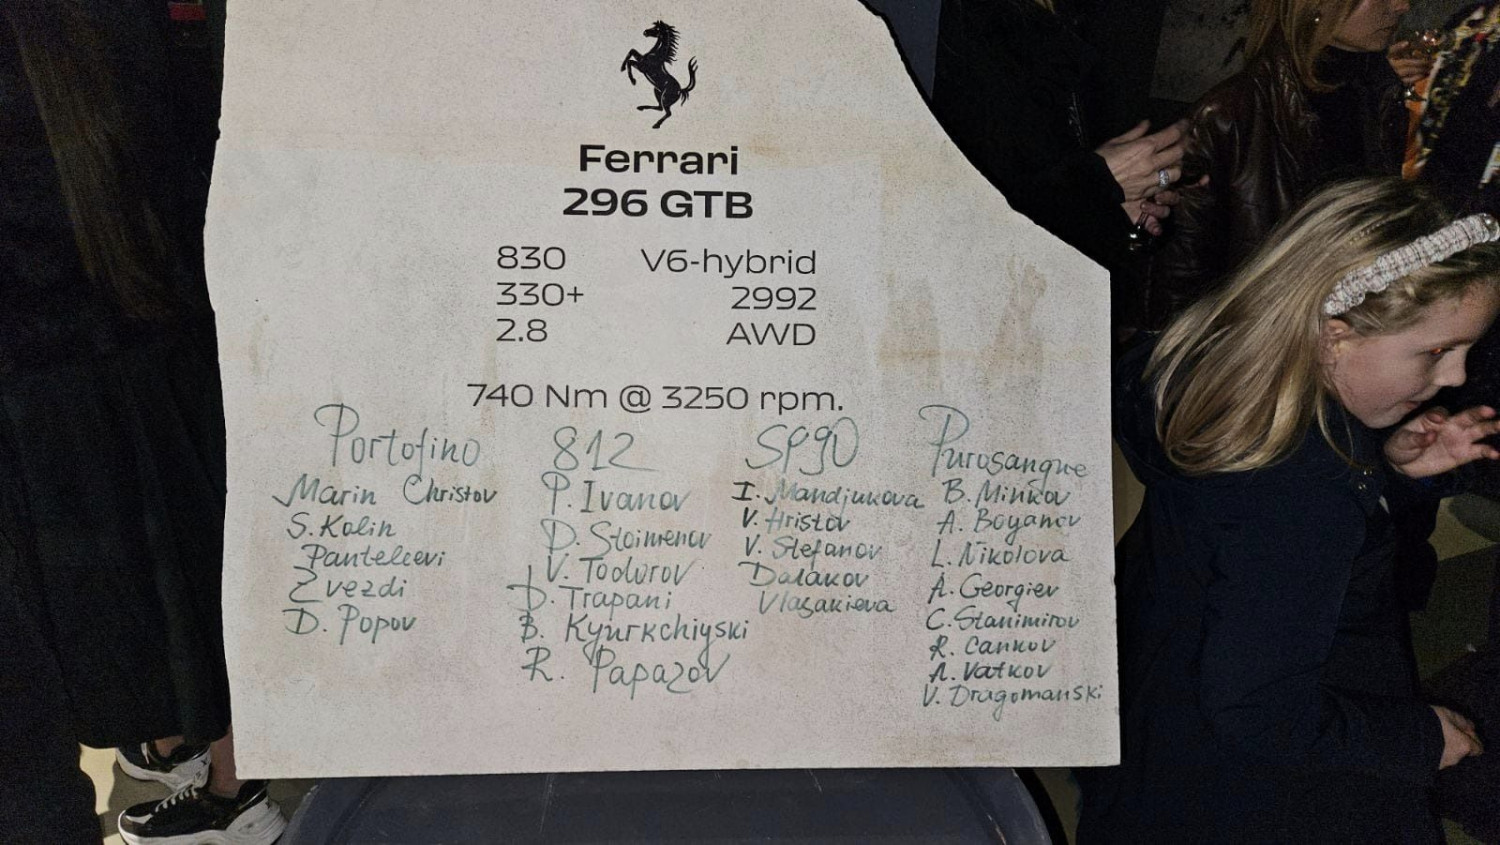 Ferrari
296 GTB
830 V6-hybrid
330+ 2992
2.8 AWD
740 Nm @ 3250 rpm.
Portofino
Marin Christov
S. Kolin
Panteleevi
Zvezdi
D. Popov
812
P. Ivanov
D. Stoimenov
V. Todorov
D. Trapani
B. Kyurkchiyski
R. Papazov
SF90
I. Mandjukova
V. Hristov
V. Stefanov
Dalakov
Vlasakieva
Purosangue
B. Minkov
A. Boyanov
L. Nikolova
A. Georgiev
C. Stanimirov
R. Cankov
A. Vatkov
V. Dragomanski